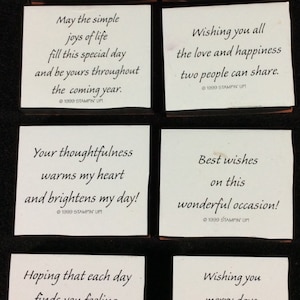 May the simple
joys of life
fill this special day
and be yours throughout
the coming year.
© 1999 STAMPIN' UP!
Wishing you all
the love and happiness
two people can share.
© 1999 STAMPIN' UP!
Your thoughtfulness
warms my heart
and brightens my day!
© 1999 STAMPIN' UP!
Best wishes
on this
wonderful occasion!
© 1999 STAMPIN' UP!
Hoping that each day
finds you feeling
Wishing you
many days